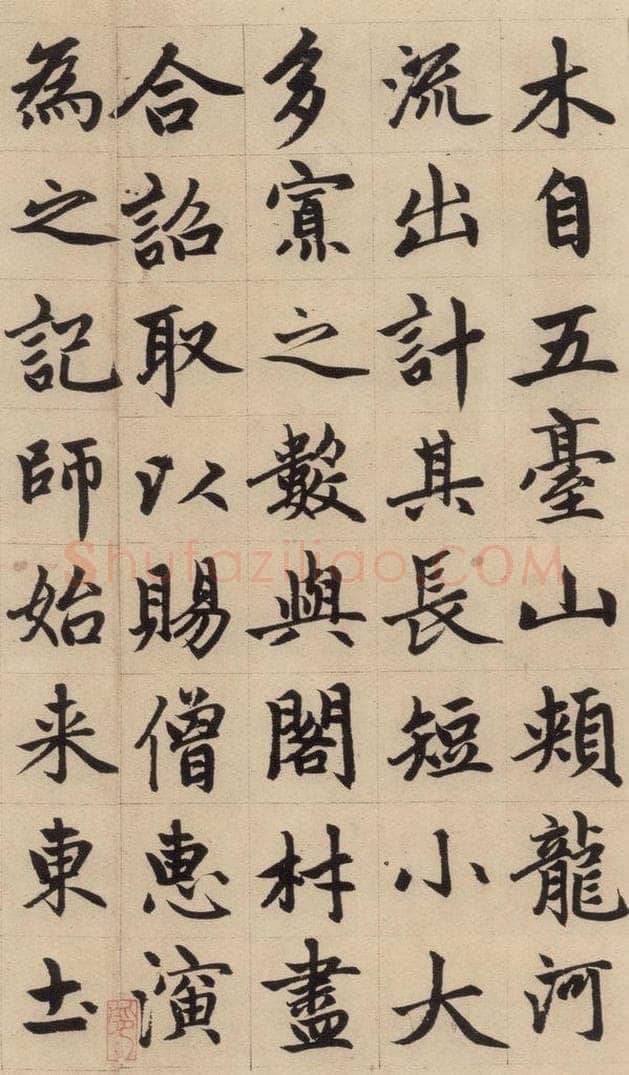 木自五臺山頰龍河
流出計其長短小大
多寡之數與閣材盡
合詔取以賜僧恵演
為之記師始来東土
Shufaziliao.COM